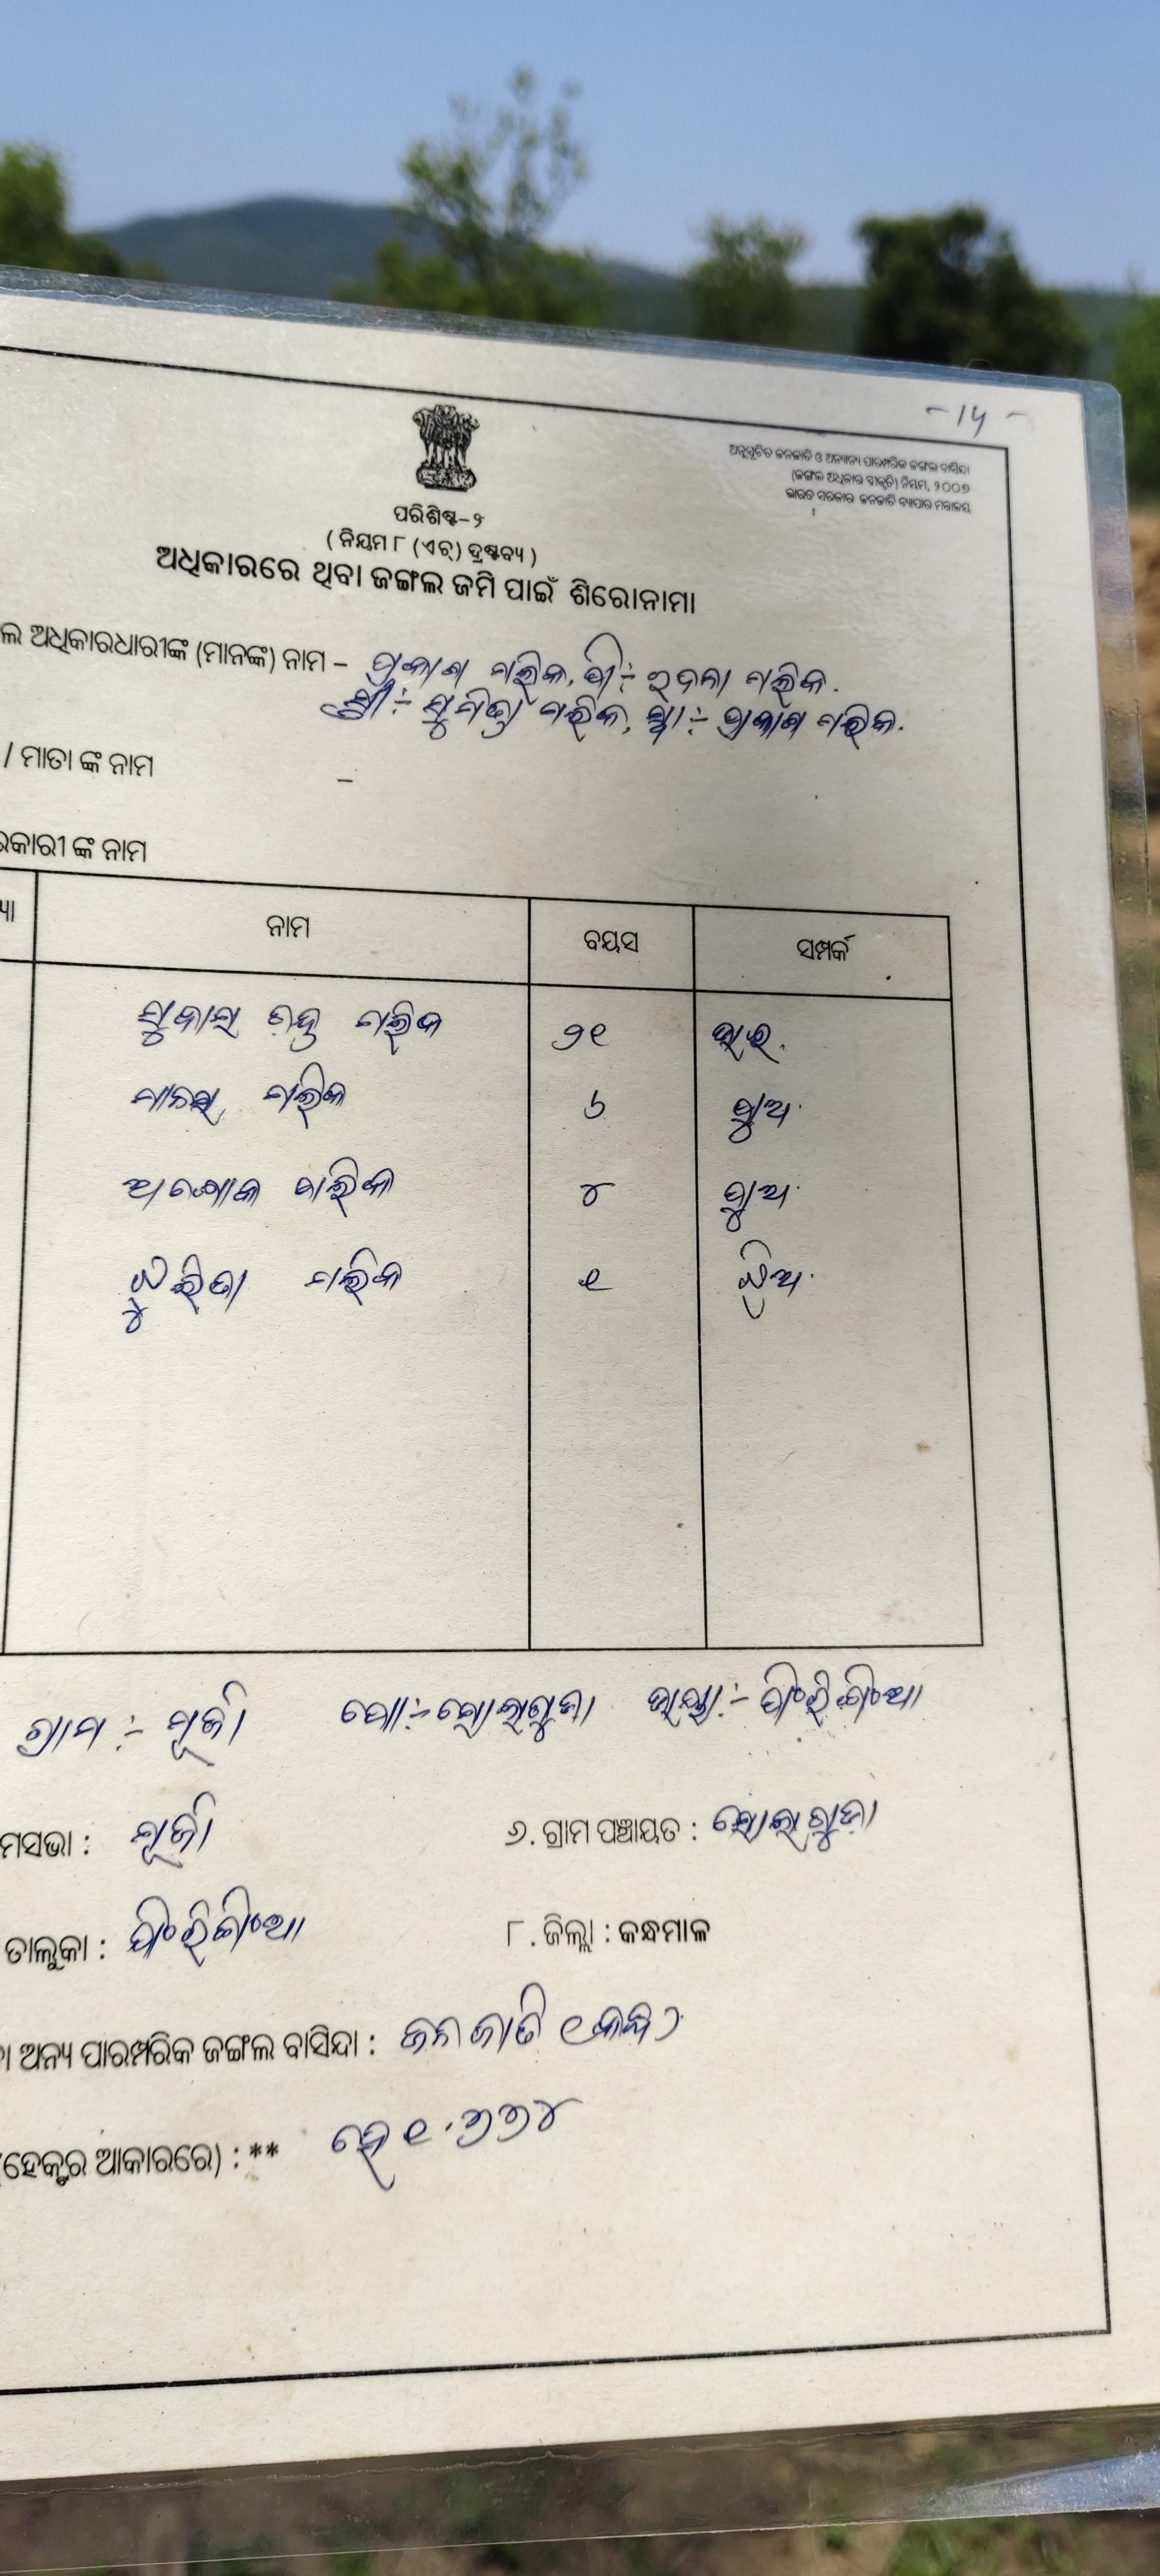 -14-
ଅନୁସୂଚିତ ଜନଜାତି ଓ ଅନ୍ୟାନ୍ୟ ପାରମ୍ପରିକ ଜଙ୍ଗଲ ବାସିନ୍ଦା
(ଜଙ୍ଗଲ ଅଧିକାର ସ୍ୱୀକୃତି) ନିୟମ, ୨୦୦୭
ଭାରତ ସରକାର ଜନଜାତି ବ୍ୟାପାର ମନ୍ତ୍ରାଳୟ
ପରିଶିଷ୍ଟ-୨
( ନିୟମ ୮ (ଏଚ୍) ଦ୍ରଷ୍ଟବ୍ୟ )
ଅଧିକାରରେ ଥିବା ଜଙ୍ଗଲ ଜମି ପାଇଁ ଶିରୋନାମା
ଲ ଅଧିକାରଧାରୀଙ୍କ (ମାନଙ୍କ) ନାମ – ପ୍ରକାଶ ମଲିକ, ପି:- ମଲିକ.
ସ୍ତ୍ରୀ:- ସୁମିତ୍ରା ମଲିକ, ସ୍ୱା:- ପ୍ରକାଶ ମଲିକ.
/ ମାତା ଙ୍କ ନାମ –
ରକାରୀ ଙ୍କ ନାମ
ୟା ନାମ ବୟସ ସମ୍ପର୍କ
ସୁବାସ ଚନ୍ଦ୍ର ମଲିକ ୨୧ ଭାଇ.
ମଲିକ ୬ ପୁଅ.
ଅଶୋକ ମଲିକ ୪ ପୁଅ.
ମଲିକ ୧ ଝିଅ.
ଗ୍ରାମ :- ମୂର୍ଜା ପୋ:- ଥାନା:- ଫିରିଙ୍ଗିଆ
ମସଭା : ମୂର୍ଜା
୬. ଗ୍ରାମ ପଞ୍ଚାୟତ :
ତାଲୁକା : ଫିରିଙ୍ଗିଆ
୮. ଜିଲ୍ଲା : କନ୍ଧମାଳ
ା ଅନ୍ୟ ପାରମ୍ପରିକ ଜଙ୍ଗଲ ବାସିନ୍ଦା : ଜନଜାତି (କନ୍ଧ)
(ହେକ୍ଟର ଆକାରରେ) : ** ହେ ୧.୨୨୪